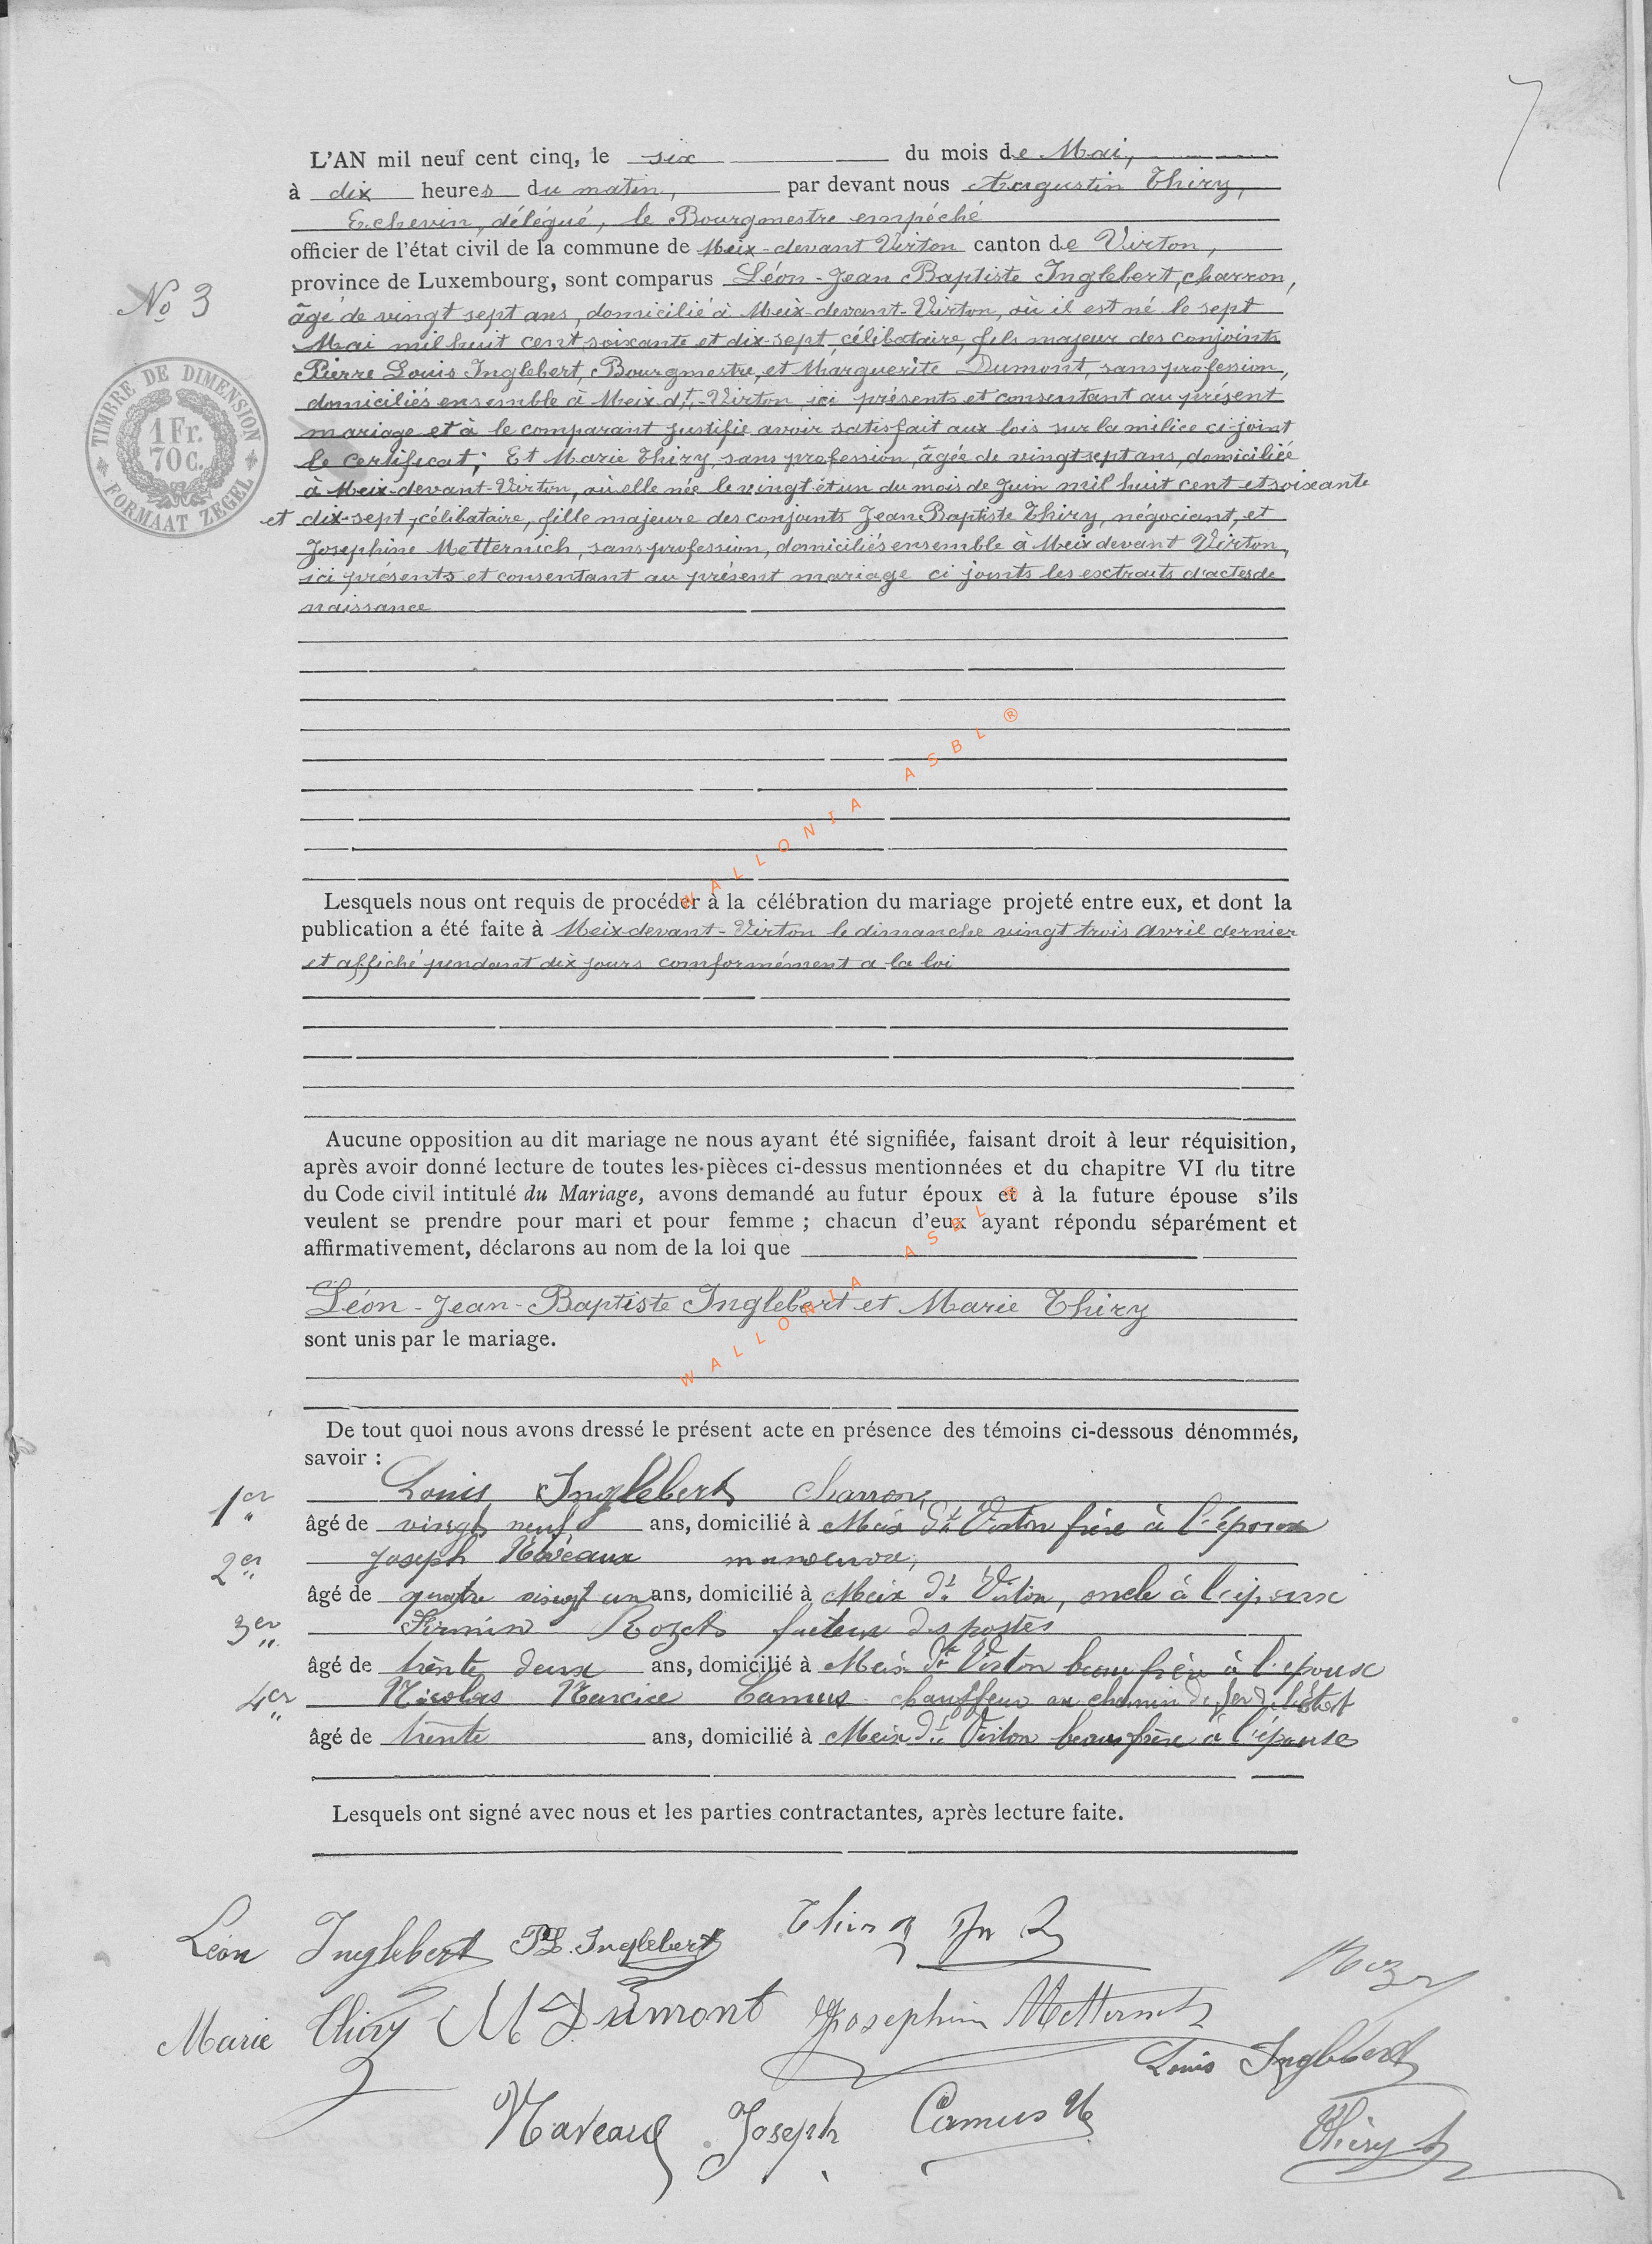 7
L'AN mil neuf cent cinq, le six du mois de Mai,
à dix heures du matin, par devant nous Augustin Thiry,
Echevin, délégué, le Bourgmestre empéché
officier de l'état civil de la commune de Meix-devant Virton canton de Virton,
province de Luxembourg, sont comparus Léon-Jean Baptiste Inglebert, charron,
No 3
âgé de vingt sept ans, domicilié à Meix-devant-Virton, où il est né le sept
Mai mil huit cent soixante et dix-sept, célibataire, fils majeur des conjoints
Pierre Louis Inglebert, Bourgmestre, et Marguerite Dumont, sans profession,
domiciliés ensemble à Meix dt-Virton, ici présents et consentant au présent
mariage et à le comparant justifie avoir satisfait aux lois sur la milice ci-joint
le certificat; Et Marie Thiry, sans profession, âgée de vingt sept ans, domiciliée
à Meix-devant-Virton, où elle née le vingt et un du mois de Juin mil huit cent et soixante
et dix-sept, célibataire, fille majeure des conjoints Jean Baptiste Thiry, négociant, et
Josephine Metternich, sans profession, domiciliés ensemble à Meix devant Virton,
ici présents et consentant au présent mariage ci joints les extraits d'actes de
naissance
TIMBRE DE DIMENSION
1 Fr.
70 C.
FORMAAT ZEGEL
WALLONIA ASBL ®
Lesquels nous ont requis de procéder à la célébration du mariage projeté entre eux, et dont la
publication a été faite à Meix-devant-Virton le dimanche vingt trois avril dernier
et affiché pendant dix jours conformément a la loi
Aucune opposition au dit mariage ne nous ayant été signifiée, faisant droit à leur réquisition,
après avoir donné lecture de toutes les pièces ci-dessus mentionnées et du chapitre VI du titre
du Code civil intitulé du Mariage, avons demandé au futur époux et à la future épouse s'ils
veulent se prendre pour mari et pour femme ; chacun d'eux ayant répondu séparément et
affirmativement, déclarons au nom de la loi que
Léon-Jean-Baptiste Inglebert et Marie Thiry
WALLONIA ASBL ®
sont unis par le mariage.
De tout quoi nous avons dressé le présent acte en présence des témoins ci-dessous dénommés,
savoir :
1er Louis Inglebert charron,
âgé de vingt neuf ans, domicilié à Meix dt Virton frère à l'époux
2er Joseph manoeuvre,
âgé de quatre vingt un ans, domicilié à Meix dt Virton, oncle à l'épouse
3er Firmin Rozet facteur des postes
âgé de trente deux ans, domicilié à Meix dt Virton beau frère à l'épouse
4er Nicolas Narcice Camus chauffeur au chemin de fer de l'état
âgé de trente ans, domicilié à Meix dt Virton beau frère à l'épouse
Lesquels ont signé avec nous et les parties contractantes, après lecture faite.
Léon Inglebert PL. Inglebert Thiry
Marie Thiry M Dumont Josephine Metternich
Louis Inglebert
Joseph Camus N
Thiry